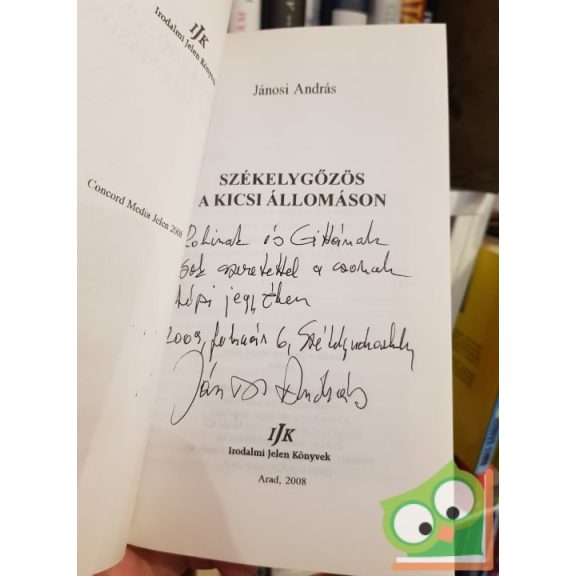 IJK
Irodalmi Jelen Könyvek
Concord Media Jelen 2008
Jánosi András
SZÉKELYGŐZÖS
A KICSI ÁLLOMÁSON
és Gittának
Sok szeretettel a csonak
jegyében
2009, február 6, Székelyudvarhely
Jánosi András
IJK
Irodalmi Jelen Könyvek
Arad, 2008